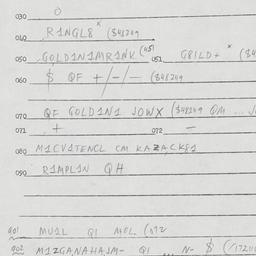 030 O
040 R1NGL8 x ($48249
050 GOLD1N1MR1NK (051 051 G81LD+ x ($4
060 $ QF +/-/- ($48249
070 QF GOLD1N1 JOWX ($48249 QM ... J
071 + 072 -
080 M1CV1TENCL CM KAZACK81
090 R1MPL1N QH
901 MU1L Q1 MPL (072
902 M1ZGANAHA1M- Q1 N- $ (/17211